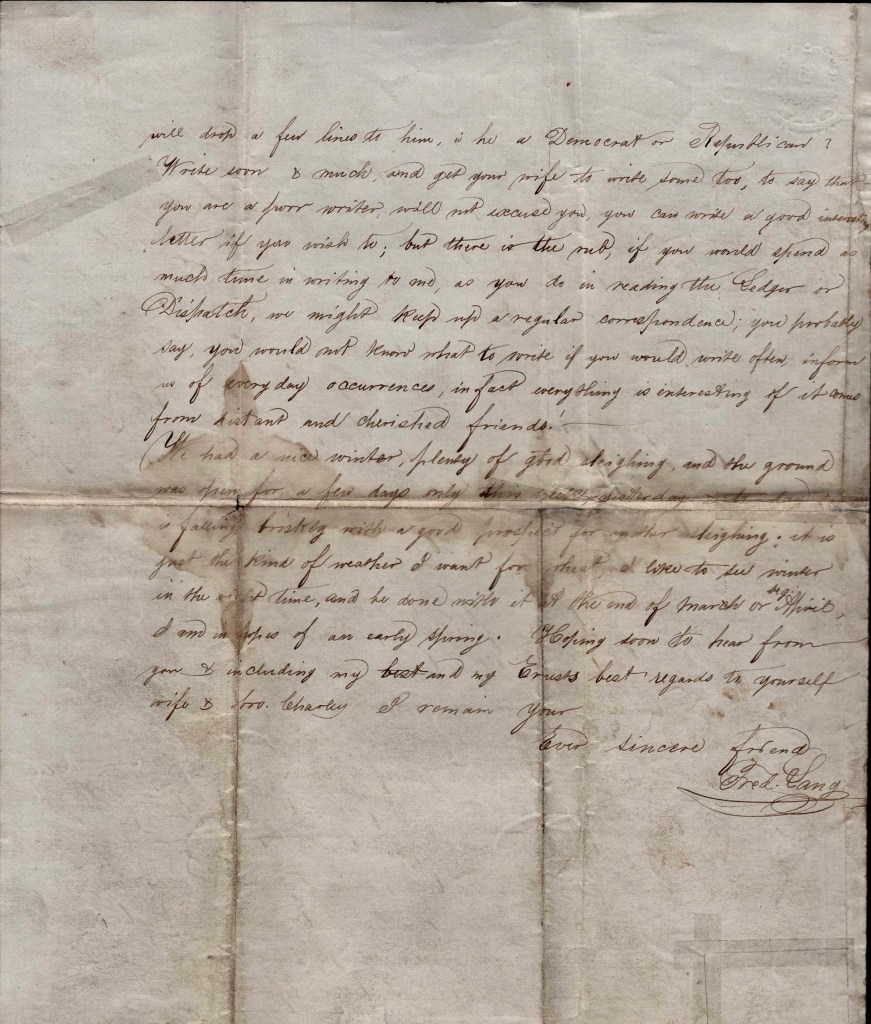 will drop a few lines to him, is he a Democrat or Republican?
Write soon & much, and get your wife to write some too, to say that
you are a poor writer, will not excuse you, you can write a good interesting
letter if you wish to; but there is the rub, if you would spend as
much time in writing to me, as you do in reading the Ledger or
Dispatch, we might keep up a regular correspondence; you probably
say, you would not know what to write if you would write often, inform
us of every day occurrences, in fact everything is interesting if it comes
from distant and cherished friends! —
(We had a nice winter, plenty of good sleighing, and the ground
was open for a few days only this yesterday
is falling briskly with a good prospect for another sleighing; it is
just the kind of weather I want for wheat, I like to see winter
in the right time, and be done with it at the end of March or beg. April,
I am in hopes of an early spring. Hoping soon to hear from
you & including my best and my Ernsts best regards to yourself
wife & bro. Charley I remain your
Ever sincere friend
Fred. Lang